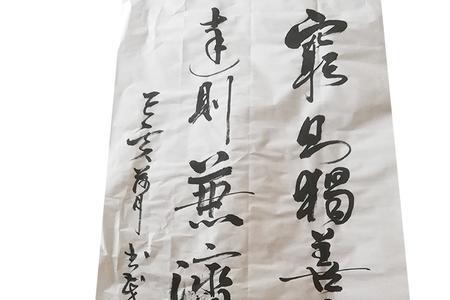 窮則獨善
達則兼濟
己亥荷月